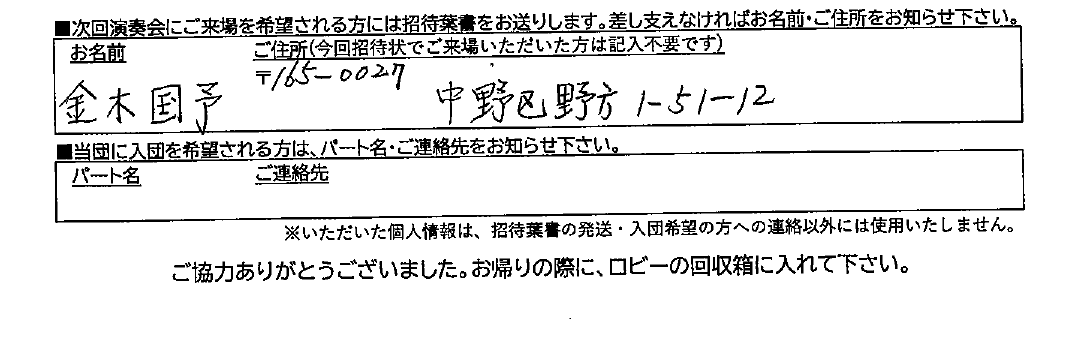 ■次回演奏会にご来場を希望される方には招待葉書をお送りします。差し支えなければお名前・ご住所をお知らせ下さい。
お名前 ご住所(今回招待状でご来場いただいた方は記入不要です)
〒165-0027
金木国予 中野区野方1-51-12
■当団に入団を希望される方は、パート名・ご連絡先をお知らせ下さい。
パート名 ご連絡先
※いただいた個人情報は、招待葉書の発送・入団希望の方への連絡以外には使用いたしません。
ご協力ありがとうございました。お帰りの際に、ロビーの回収箱に入れて下さい。